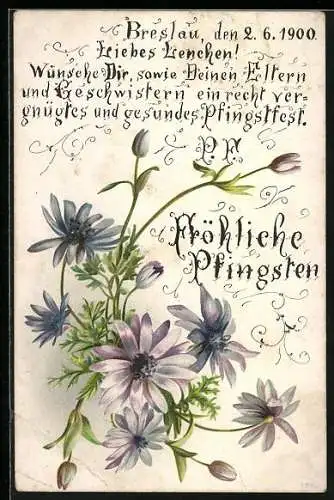 Breslau, den 2. 6. 1900.
Liebes Lenchen!
Wünsche Dir, sowie Deinen Eltern
und Geschwistern ein recht ver-
gnügtes und gesundes Pfingstfest.
P. P.
Fröhliche
Pfingsten